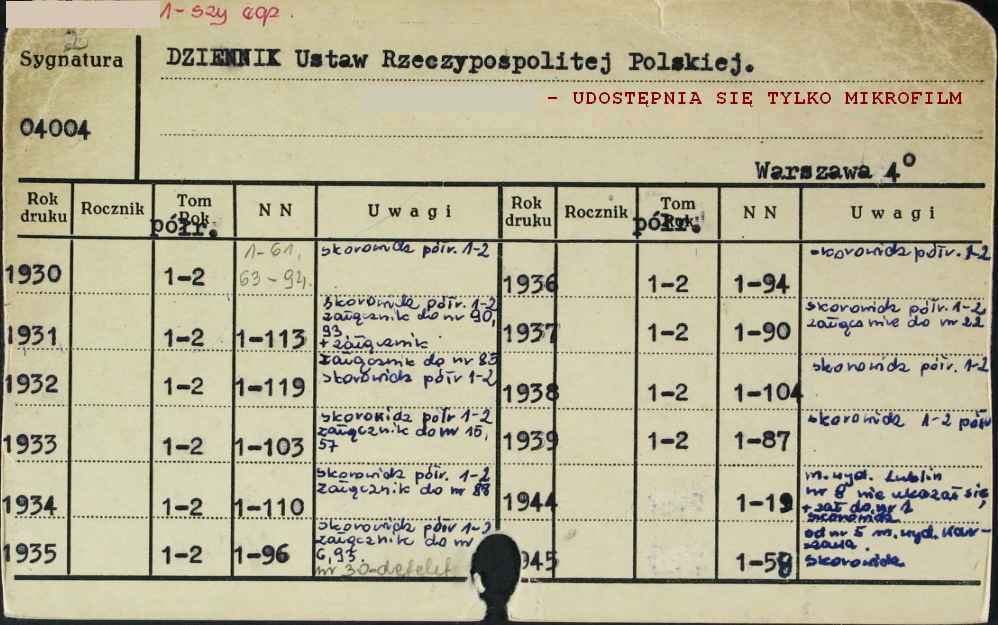 1-szy egz.
2
Sygnatura
04004
DZIENNIK Ustaw Rzeczypospolitej Polskiej.
- UDOSTĘPNIA SIĘ TYLKO MIKROFILM
Warszawa 4°
Rok druku Rocznik Tom Rok półr. N N Uwagi
1930 1-2 1-61, 63-94. skorowidz półr. 1-2
1931 1-2 1-113 skorowidz półr. 1-2
załącznik do nr 90,
93
+ załącznik
załącznik do nr 83
1932 1-2 1-119 skorowidz półr 1-2
1933 1-2 1-103 skorowidz półr 1-2
załącznik do nr 15,
57
1934 1-2 1-110 skorowidz półr. 1-2
załącznik do nr 88
1935 1-2 1-96 skorowidz półr 1-2
załącznik do nr
6, 93.
nr 30
Rok druku Rocznik Tom Rok półr. N N Uwagi
1936 1-2 1-94 skorowidz półr. 1-2
1937 1-2 1-90 skorowidz półr. 1-2
załącznik do nr 22
1938 1-2 1-104 skorowidz półr. 1-2
1939 1-2 1-87 skorowidz 1-2 półr
1944 1-19 m. wyd. Lublin
nr 8 nie ukazał się,
+ zał do nr 1
skorowidz
945 1-59 od nr 5 m. wyd. War-
szawa.
skorowidz